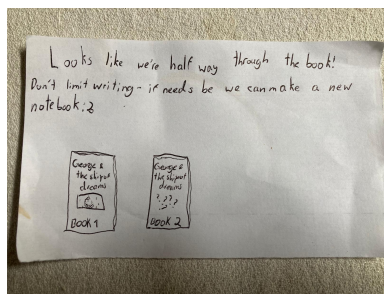 Looks like we're half way through the book!
Don't limit writing - if needs be we can make a new
notebook :3
George &
the ship of
dreams
BOOK 1
George &
the ship of
dreams
? ? ? ?
BOOK 2